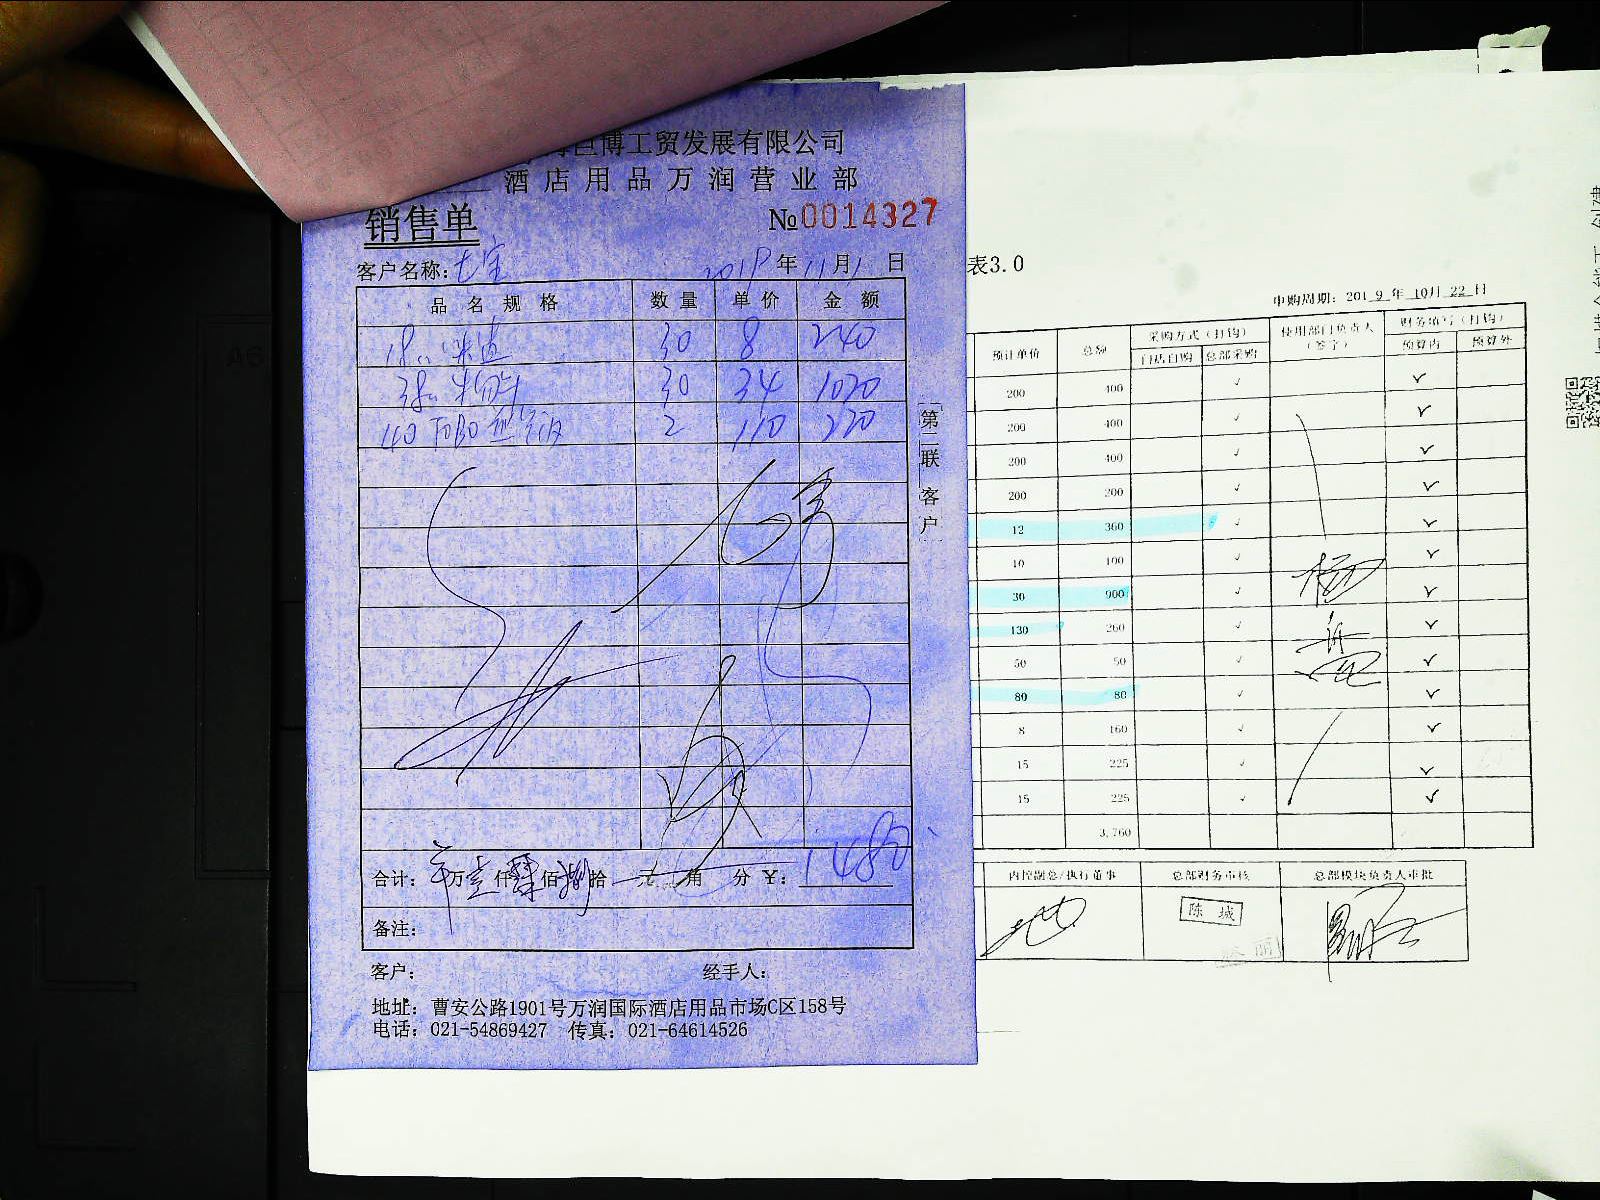 巨博工贸发展有限公司
酒店用品万润营业部
销售单
№0014327
客户名称:七宝
2019年11月1日
品名规格 数量 单价 金额
30 8 240
30 34 1020
40 TOBO 2 110 220
第二联 客户
合计: 万壹仟肆佰捌拾 元 角 分 ¥: 1480
备注:
客户: 经手人:
地址: 曹安公路1901号万润国际酒店用品市场C区158号
电话: 021-54869427 传真: 021-64614526
表3.0
申购周期: 2019年10月22日
预计单价 总额 采购方式(打钩) 使用部门负责人(签字) 财务填写(打钩)
门店自购 总部采购 预算内 预算外
200 400 ✓ ✓
200 400 ✓ ✓
200 400 ✓ ✓
200 200 ✓ ✓
12 360 ✓ ✓
10 100 ✓ ✓
30 900 ✓ ✓
130 260 ✓ ✓
50 50 ✓ ✓
80 80 ✓ ✓
8 160 ✓ ✓
15 225 ✓ ✓
15 225 ✓ ✓
3,760
内控副总/执行董事 总部财务审核 总部模块负责人审批
陈城